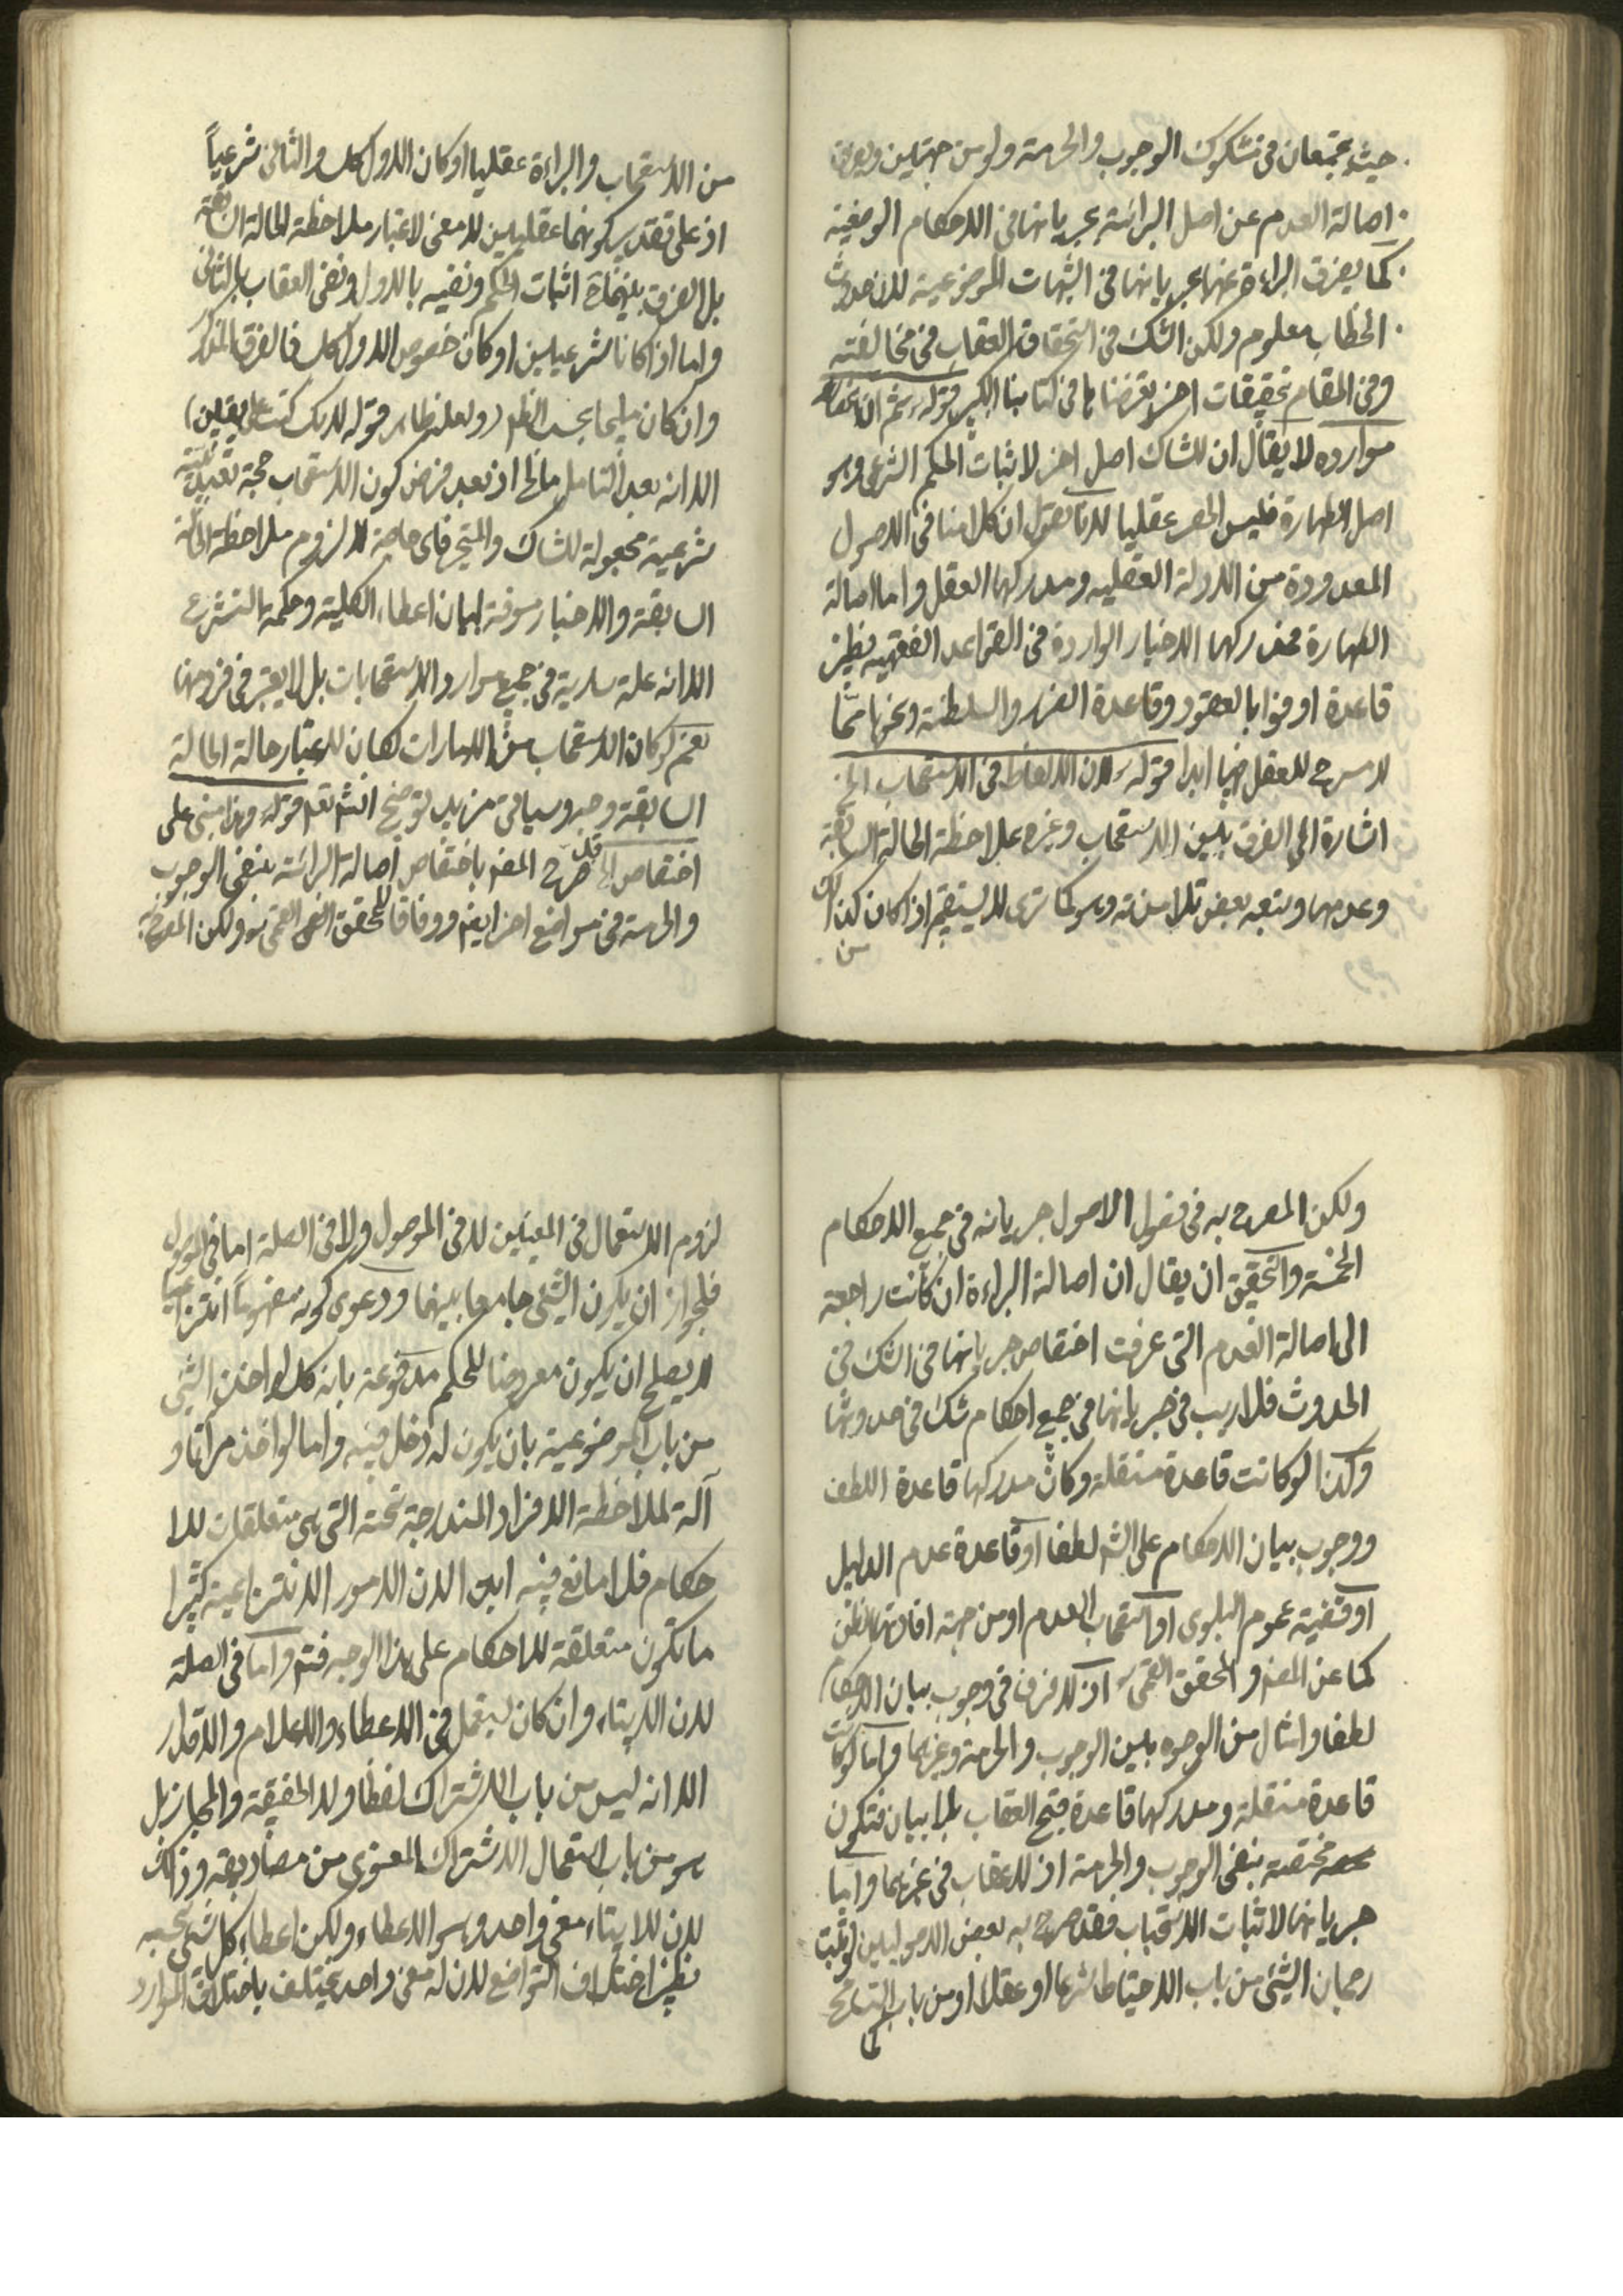 حيث يجتمعان فى مشكوك الوجوب والحرمة ولو من جهتين ويفرق
اصالة العدم عن اصل البرائة بجريانها فى الاحكام الوضعية
كما يفرق البراءة عنها بجريانها فى الشبهات الموضوعية لان حدوث
الخطاب معلوم ولكن الشك فى استحقاق العقاب فى مخالفته
وفى المقام تحقيقات اخر تعرضنا بها فى كتابنا الكبير قوله ثم ان انحصار
موارده لا يقال ان للشاك اصل اخر لاثبات الحكم الشرعى وهو
اصل الطهارة فليس الحصر عقليا لانا نقول ان كلامنا فى الاصول
المعدودة من الادلة العقليه ومدركها العقل واما اصالة
الطهارة فمدركها الاخبار الواردة فى القواعد الفقهيه نظير
قاعدة اوفوا بالعقود وقاعدة الضرر والسلطنة ونحوها مما
لا مسرح للعقل فيها ابدا قوله لان اللحاظ فى الاستصحاب الخ
اشارة الى الفرق بين الاستصحاب وغيره بملاحظة الحالة السابقة
وعدمها وتبعه بعض تلامذته وهو كما ترى لا يستقيم اذا كان كذلك
من
من الاستصحاب والبراءة عقليا او كان الاول كك والثانى شرعياً
اذ على تقدير كونهما عقليين لا معنى لاعتبار ملاحظة الحالة السابقة
بل الفرق بينهما اثبات الحكم ونفيه بالاول ونفى العقاب بالثانى
واما اذا كانا شرعيين او كان خصوص الاول كك فالفرق المذكور
وان كان مليحا بحسب النظر (ولعله ظاهر قوله لانك كنت على يقين)
الا انه بعد التامل مالح اذ بعد فرض كون الاستصحاب حجة تعبدية
شرعية مجعولة للشاك والمتحير فاى حاجة الا لزوم ملاحظة الحالة
السابقة والاخبار مسوقة لبيان اعطاء الكلية وحكمة التشريع
لا انه علة سارية فى جميع موارد الاستصحابات بل لا يعتبر فى فرد منها
نعم لو كان الاستصحاب من الامارات لكان لاعتبار حالة الحالة
السابقة وجه وسياتى مزيد توضيح انشاء الله قوله وهذا مبنى على
اختصاص الخ قد صرح المصنف باختصاص اصالة البرائة بنفى الوجوب
والحرمة فى مواضع اخر ايضا ووفاقا للمحقق القمى ولكن المصرح به
ولكن المصرح به فى فصول الاصول جريانه فى جميع الاحكام
الخمسة والتحقيق ان يقال ان اصالة البراءة ان كانت راجعة
الى اصالة العدم التى عرفت اختصاص جريانها فى الشك فى
الحدوث فلا ريب فى جريانها فى جميع احكام شك فى حدوثها
وكذا لو كانت قاعدة مستقلة وكان مدركها قاعدة اللطف
ووجوب بيان الاحكام على الله لطفا او قاعدة عدم الدليل
او قضية عموم البلوى او استصحاب العدم او من جهة افادتها الظن
كما عن المصنف والمحقق القمى اذ لا فرق فى وجوب بيان الاحكام
لطفا وامثال من الوجوه بين الوجوب والحرمة وغيرهما واما لو كانت
قاعدة مستقلة ومدركها قاعدة قبح العقاب بلا بيان فتكون
مختصة بنفى الوجوب والحرمة اذ لا عقاب فى غيرهما واما
جريانها لاثبات الاستحباب فقد صرح به بعض الاصوليين لو ثبت
رجحان الشئ من باب الاحتياط شرعا او عقلا او من باب التسامح
لزوم الاستعمال فى المعنيين لا فى الموصول ولا فى الصلة اما فى الموصول
فلجواز ان يكون الشئ جامعا بينهما ودعوى كونه مفهوماً انتزاعيا
لا يصلح ان يكون معروضا للحكم مدفوعة بانه كك لو اخذ الشئ
من باب الموضوعية بان يكون له دخل فيه واما لو اخذ مرآتا و
آلة لملاحظة الافراد المندرجة تحته التى هى متعلقات للا
حكام فلا مانع فيه ابدا لان الامور الانتزاعية كثيرا
ما تكون متعلقة للاحكام على هذا الوجه فتم واما فى الصلة
لان الايتاء وان كان يستعمل فى الاعطاء والاعلام والاقدار
الا انه ليس من باب الاشتراك لفظا ولا الحقيقة والمجاز بل
هو من باب استعمال الاشتراك المعنوى من مصاديقه وذلك
لان للايتاء معنى واحد وهو الاعطاء ولكن اعطاء كل شئ بحسبه
نظير اختلاف التواضع لان له معنى واحد يختلف باختلاف الموارد